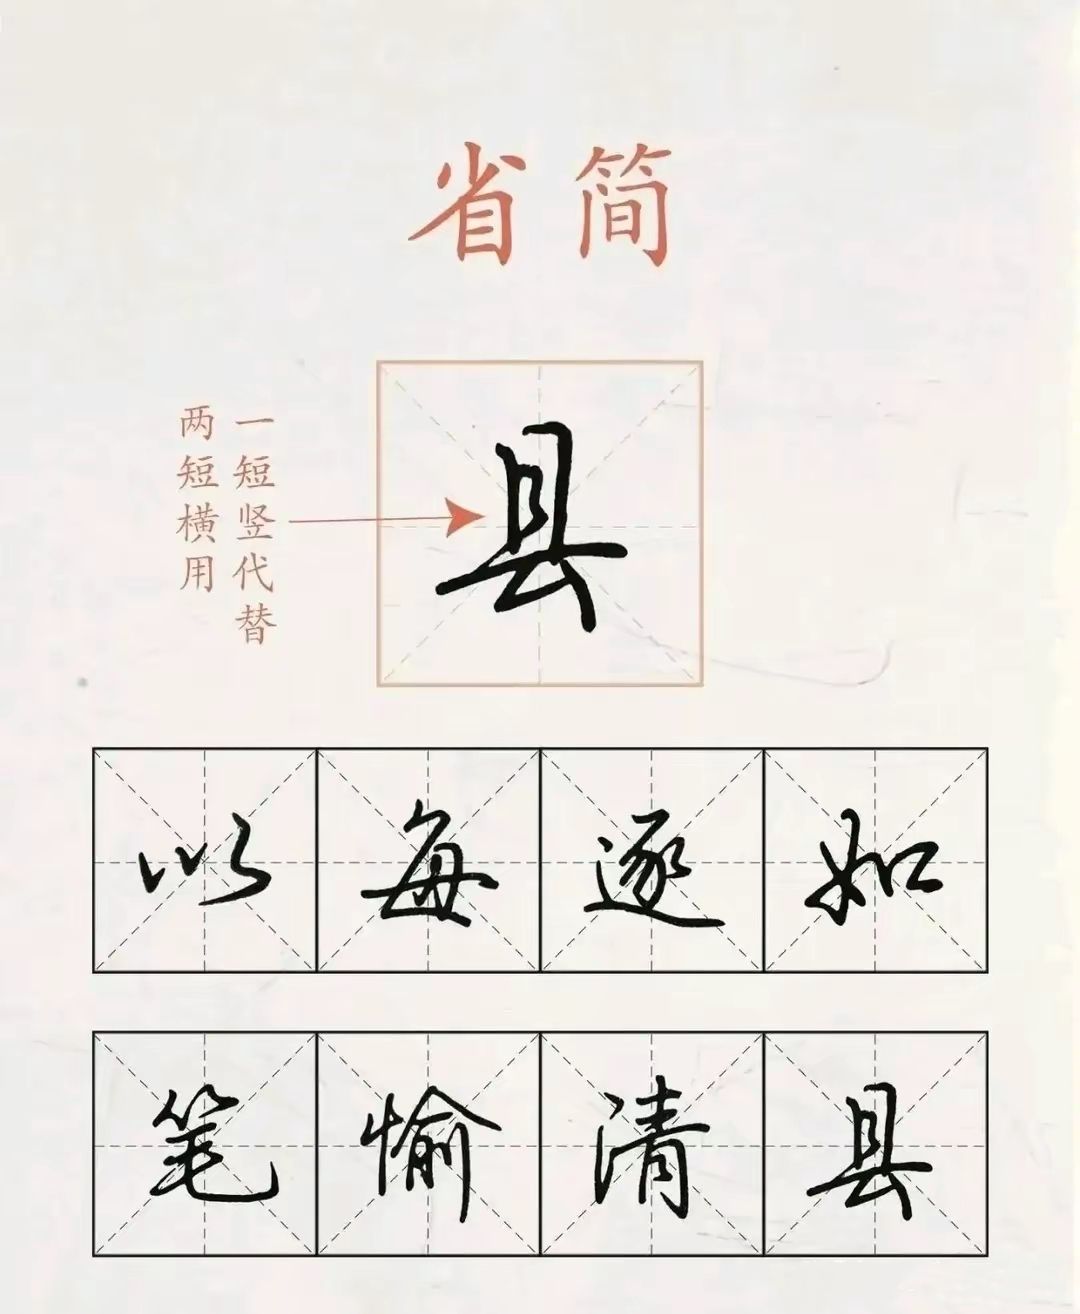 省简
两短横用
一短竖代替
县
以每逐如
笔愉清县